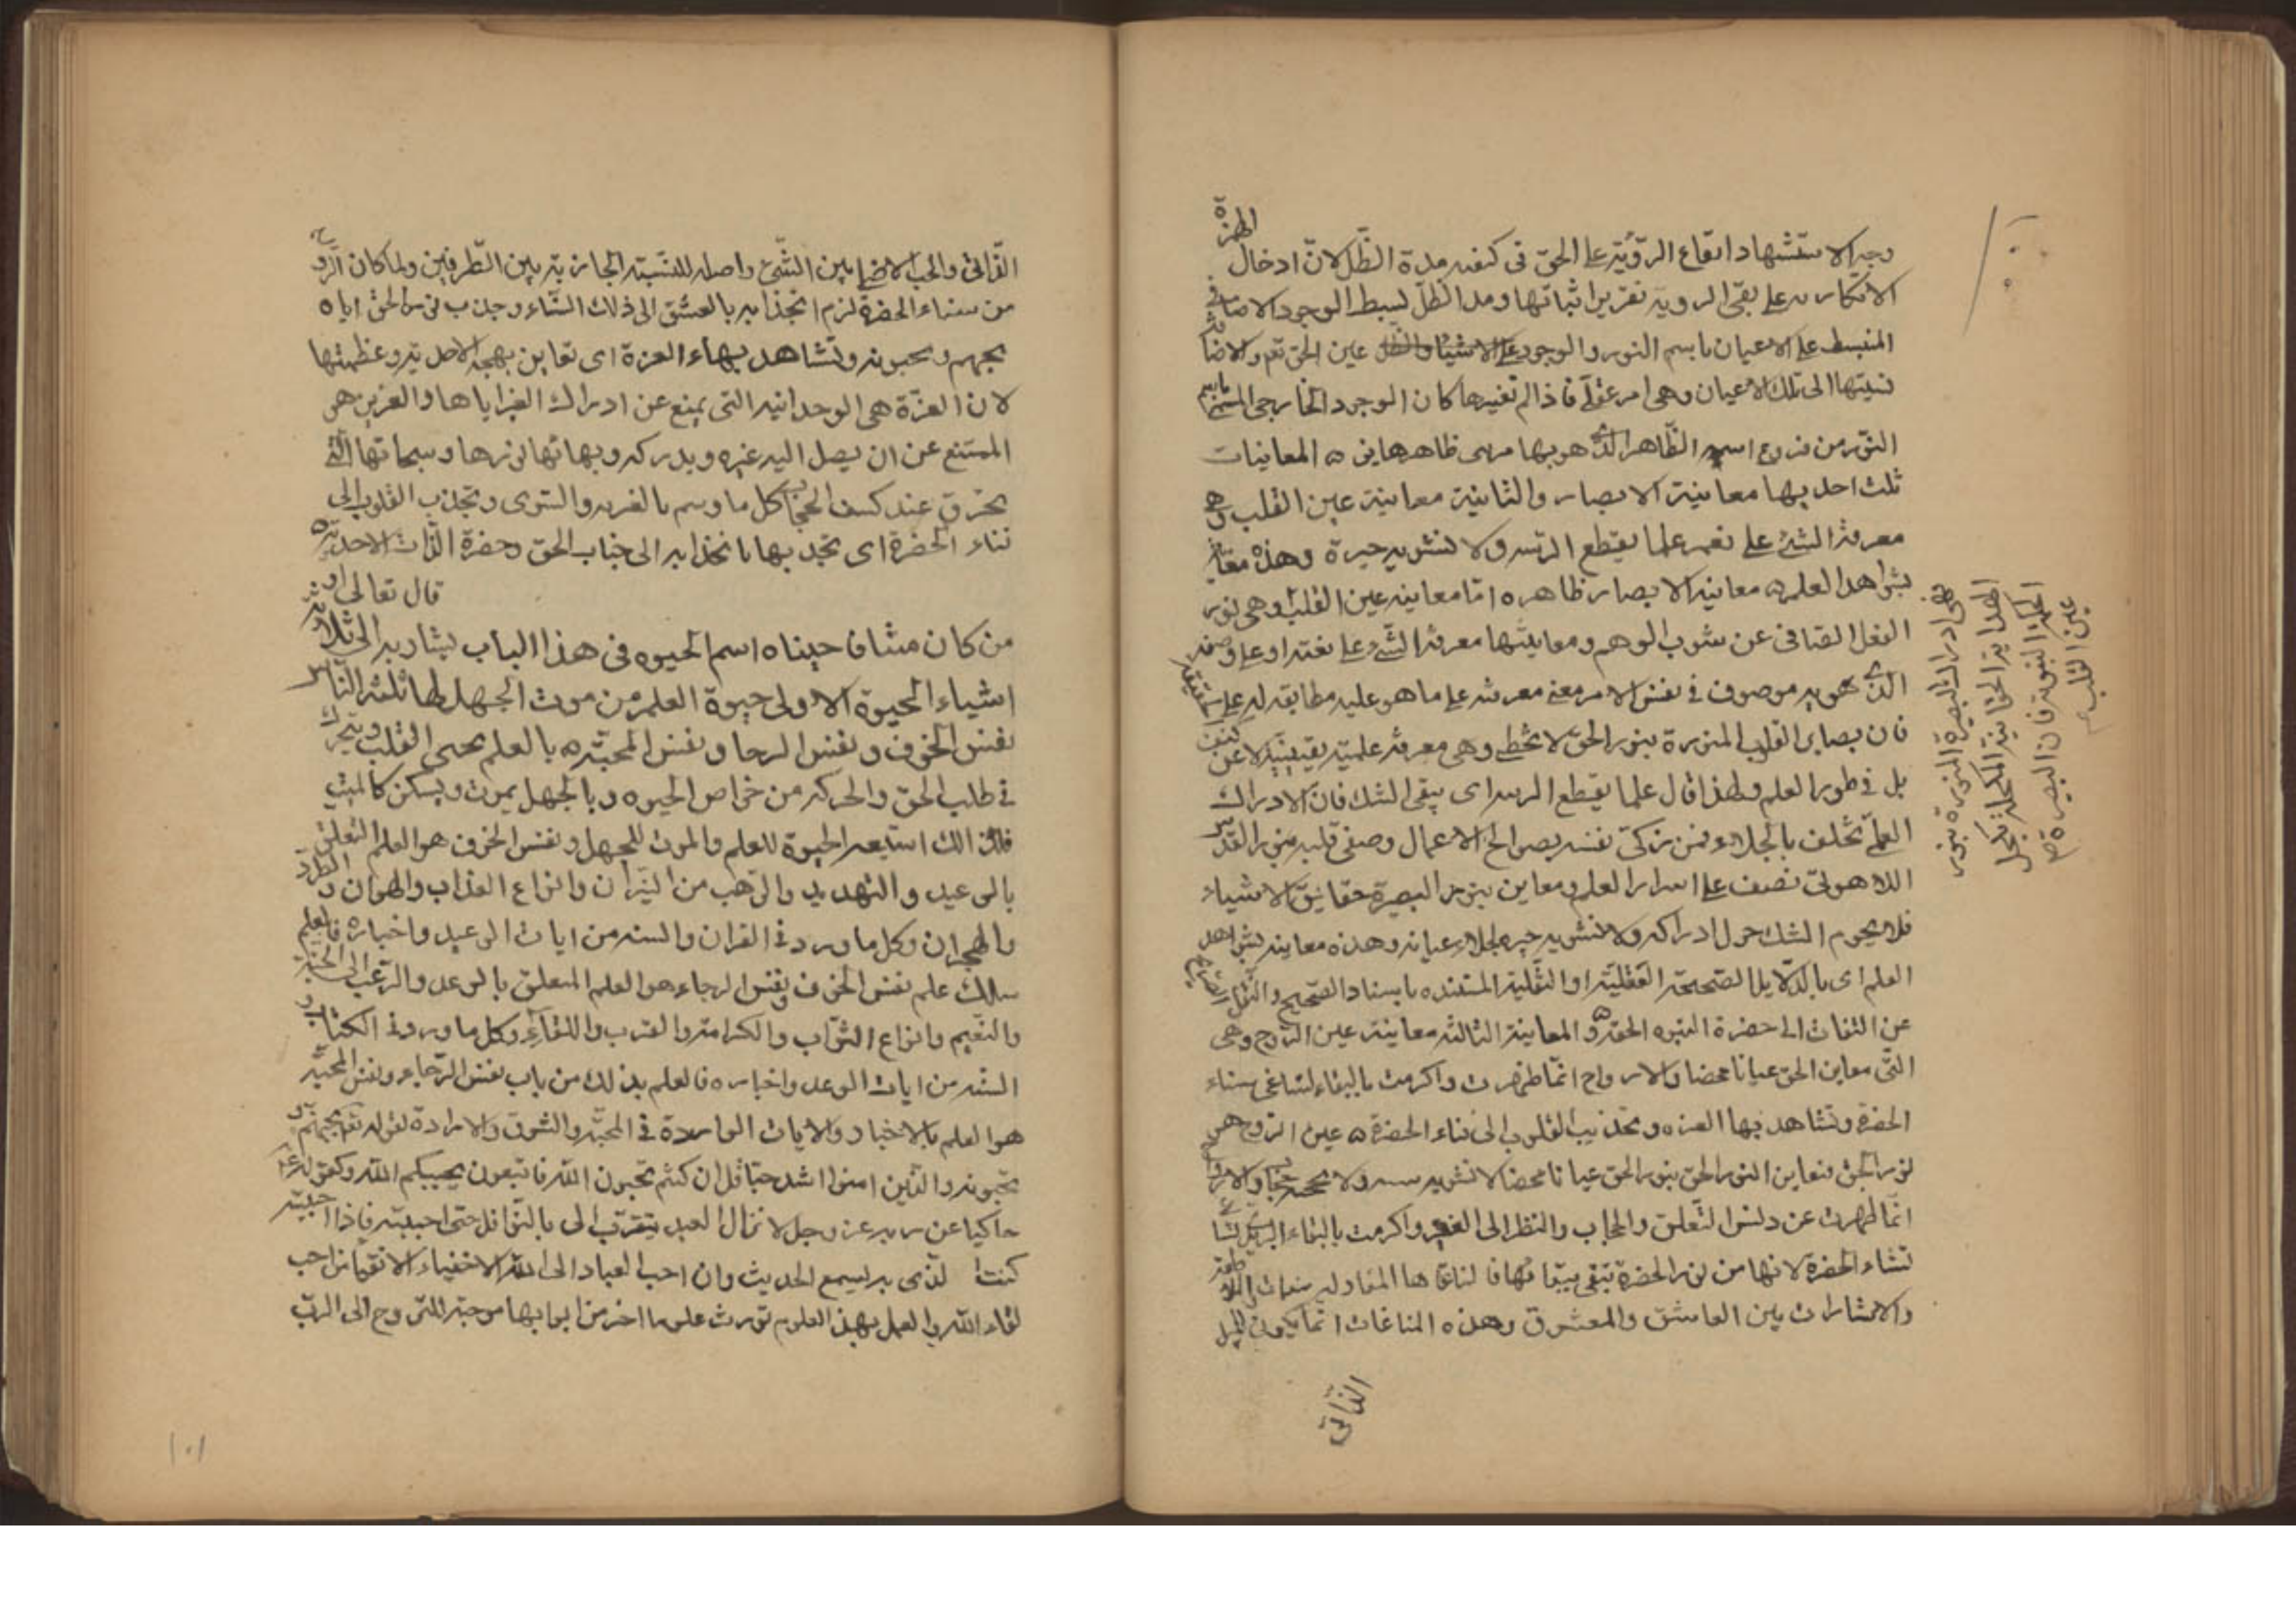 وجه الاستشهاد ايقاع الرؤية على الحق فى كيفيه مدة الظل لان ادخال الهمزة
الانكاريه على نفى الرويه تقرير اثباتها ومد الظل لبسط الوجود الاضافى
المنبسط على الاعيان باسم النور والوجود عين الحق تعم والاضافة
نسبتها الى تلك الاعيان وهى امر عقلى فاذا لم تغيرها كان الوجود الخارجى المسمى باسم
النور من فروع اسم الظاهر الذى هو بها مرى ظاهرها ين ه المعاينات
ثلث احديها معاينة الابصار والثانية معاينة عين القلب وهى
معرفة الشئ على نعته علما يقطع الريبه ولا تشوبه حيرة وهذه معاينة
بشواهد العلم ه معاينه الابصار ظاهره اما معاينه عين القلب وهى نور
العقل الصافى عن شوب الوهم ومعاينتها معرفة الشئ على نعته او على وصفه
الذى هو به موصوف فى نفس الامر معنى معرفته على ما هو عليه مطابقه له على
فان بصاير القلوب المنورة بنور الحق لا تخطى وهى معرفة علمية يقينية لا عن
بل فى طور العلم ولهذا قال علما يقطع الريبه اى يبقى الشك فان الادراك
العلمى تخلف بالجلاء فمن زكى نفسه بصوالح الاعمال وصفى قلبه بنور القدس
اللاهوتى نصف على اسرار العلم ومعاين بنور البصيرة حقايق الاشياء
فلا يحوم الشك حول ادراكه ولا تشوبه حيره لجلاء عيانه وهذه معاينه بشواهد
العلم اى بالدلايل الصحيحة العقلية او النقلية المستنده باسناد الصحيح والنقل
عن الثقات الى حضرة النبوه الحقه ه والمعاينة الثالثه معاينة عين الروح وهى
التى معاين الحق عيانا محضا والارواح انما طهرت واكرمت بالبقاء لتناغى سناء
الحضرة وتشاهد بها العزه وتجذب القلوب الى فناء الحضرة ه عين الروح هى
نور الحق فتعاين النور الحق بنور الحق عيانا محضا لا تشوبه ولا يحجبه حجاب والارواح
انما طهرت عن دنس التعلق والحجاب والنظر الى الغير واكرمت بالبقاء
سناء الحضرة لانها من نور الحضرة تبقى ببقائها فا لناغاها
والاشارات بين العاشق والمعشوق وهذه المناغات انما يكون للميل
الذاتى
ادراك البصيرة المنورة بنور
الهداية الحقانية المكحلة بكحل
النبوية فان البصيرة
عين القلب
الذاتى والحب الاصلى بين الشئ واصله للنسبة الجاذبة بين الطرفين ولما كان الروح
من سناء الحضرة لزم انجذابه بالعشق الى ذلك السناء وجذب نور الحق اياه
يحبهم ويحبونه وتشاهد بهاء العزة اى تعاين بهجة الاحدية وعظمتها
لان العزة هى الوحدانيه التى يمنع عن ادراك الغير اياها والعزيز هى
الممتنع عن ان يصل اليه غيره ويدركه وبهاتها نورها وسبحاتها التى
يحرق عند كشف الحجاب كل ما وسم بالغيريه والسوى وتجذب القلوب الى
فناء الحضرة اى تجذبها بانجذابه الى جناب الحق وحضرة الذات الاحدية
قال تعالى او
من كان ميتا فاحييناه اسم الحيوه فى هذا الباب يشار به الى ثلاثة
اشياء الحيوة الاولى حيوة العلم من موت الجهل لها ثلثة انفاس
نفس الخوف ونفس الرجا ونفس المحبة ه بالعلم يحيى القلب ويتحرك
فى طلب الحق والحركة من خواص الحيوه وبالجهل يموت ويسكن كالميت
فلذالك استعير الحيوة للعلم والموت للجهل ونفس الخوف هو العلم المتعلق
بالوعيد والتهديد والترهب من النيران وانواع العذاب والهوان والطرد
والهجران وكل ما ورد فى القران والسنه من ايات الوعيد واخباره فالعلم
بذالك علم نفس الخوف ونفس الرجاء هو العلم المتعلق بالوعد والرغب الى الجنة
والنعيم وانواع الثواب والكرامة والقرب واللقاء وكل ما ورد فى الكتاب و
السنه من ايات الوعد واخباره فالعلم بذلك من باب نفس الرجاء ونفس المحبة
هو العلم بالاخبار والايات الواردة فى المحبة والشوق والارادة لقوله تعم يحبهم و
يحبونه والذين امنوا اشد حبا قل ان كنتم تحبون الله فاتبعون يحببكم الله وكقوله ع
حاكيا عن ربه عز وجل لا يزال العبد يتقرب الى بالنوافل حتى احببته فاذا احببته
كنت الذى به يسمع الحديث وان احب العباد الى الله الاخفياء الاتقيا من احب
لقاء الله والعمل بهذ العلوم تورث علوما اخر من ابوابها موجبة للتروح الى الرب
١٠١